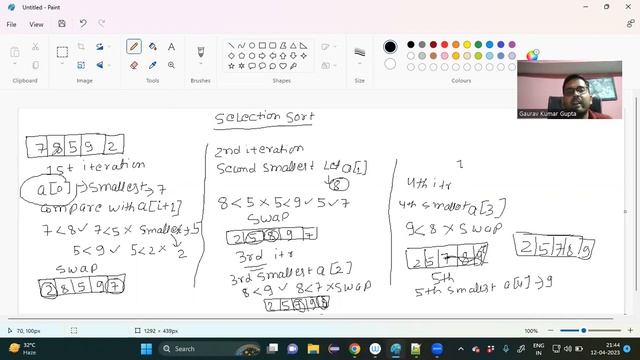 Untitled - Paint
File
Edit
View
Clipboard
Image
Tools
Brushes
Shapes
Size
Colors
Gaurav Kumar Gupta
Selection Sort
7 8 5 9 2
1st iteration
a[0] → Smallest → 7
compare with a[i+1]
7 < 8 ✓ 7 < 5 × Smallest → 5
5 < 9 ✓ 5 < 2 × 2
SWAP
2 8 5 9 7
2nd iteration
Second smallest let a[1]
8
8 < 5 × 5 < 9 ✓ 5 ✓ 7
SWAP
2 5 8 9 7
3rd itr
3rd Smallest a[2]
8 < 9 ✓ 8 < 7 × SWAP
2 5 7 9 8
4th itr
4th smallest a[3]
9 < 8 × SWAP
2 5 7 8 9
2 5 7 8 9
5th
5th smallest a[4] → 9
70, 100px
1292 × 439px
100%
32°C
Haze
Search
ENG
IN
21:44
12-04-2023